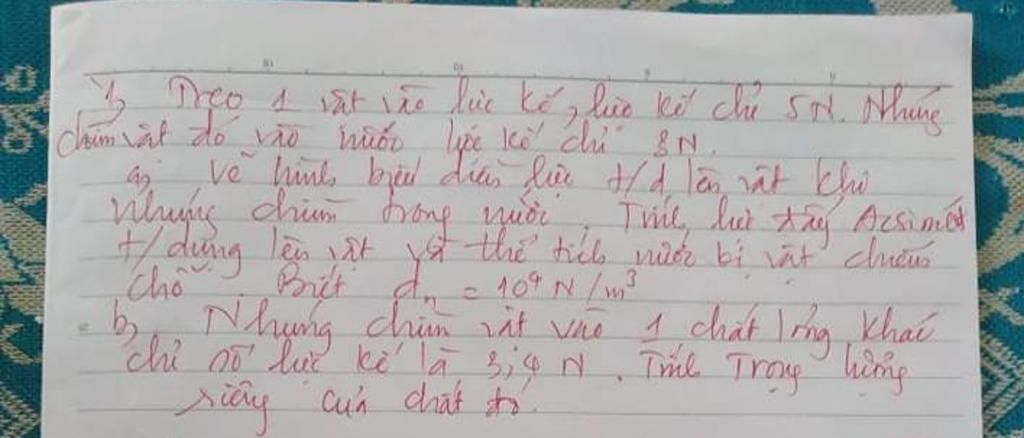 1, Treo 1 vật vào lực kế, lực kế chỉ 5N. Nhúng
chìm vật đó vào nước lực kế chỉ 3N.
a, Vẽ hình biểu diễn lực t/d lên vật khi
nhúng chìm trong nước. Tính lực đẩy Acsimét
t/dụng lên vật và thể tích nước bị vật chiếm
chỗ. Biết dn = 10⁴ N/m³
b, Nhúng chìm vật vào 1 chất lỏng khác
chỉ số lực kế là 3,4 N. Tính Trọng lượng
riêng của chất đó.